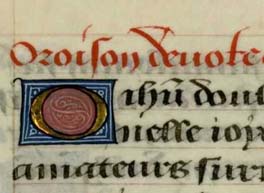 Oroison deuote
O ihū doul
nelle ioy
amateurs sur